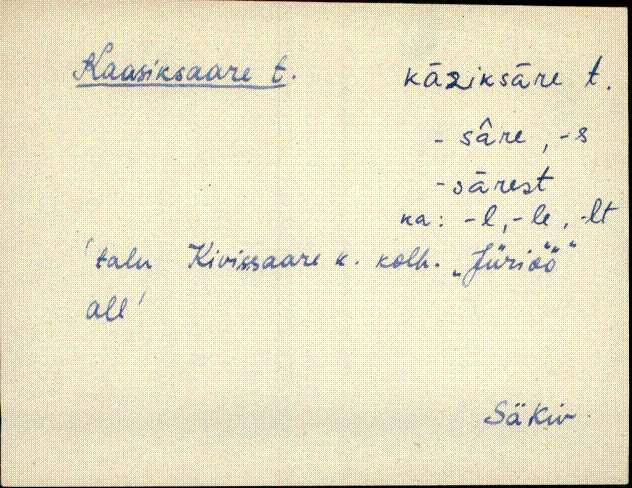 Kaasiksaare t. kāziksāre t.
- sâre, -s
-sārest
ka: -l, -le, -lt
'talu Kivissaare k. kolh. „Jüriöö"
all'
SäKiv